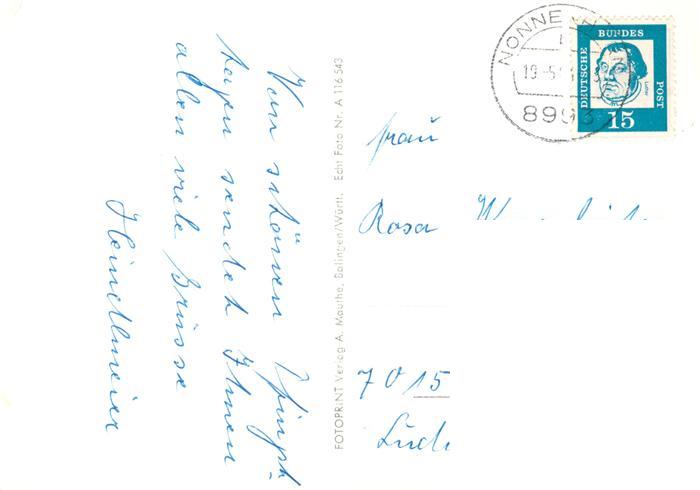 Von schönen Pfingst-
tagen sendet Ihnen
allen viele Grüsse
Heindlmeier
FOTOPRINT Verlag A. Mauthe, Balingen/Württ. Echt Foto Nr. A 116 543
NONNE
19.-5.
8993
DEUTSCHE
BUNDES
POST
Luther
15
Frau
Rosa
7015